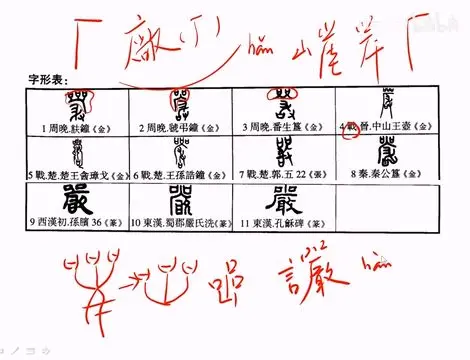 厂 廠(厂) hǎn 山崖岸厂
字形表：
1 周晚.㝬鐘《金》 2 周晚.虢弔鐘《金》 3 周晚.番生簋《金》 4 戰.晉.中山王壺《金》
5 戰.楚.楚王酓璋戈《金》 6 戰.楚.王孫誥鐘《金》 7 戰.楚.郭.五22《張》 8 秦.秦公簋《金》
9 西漢初.孫臏36《篆》 10 東漢.蜀郡嚴氏洗《篆》 11 東漢.孔龢碑《篆》
hǎn